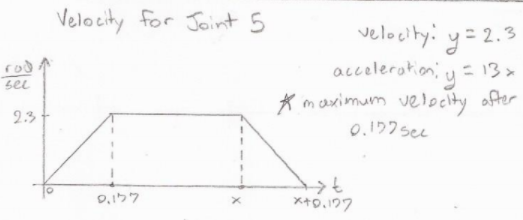 Velocity for Joint 5
velocity: y = 2.3
acceleration: y = 13x
* maximum velocity after
0.177sec
rad
sec
2.3
0
0.177
x
x+0.177
t